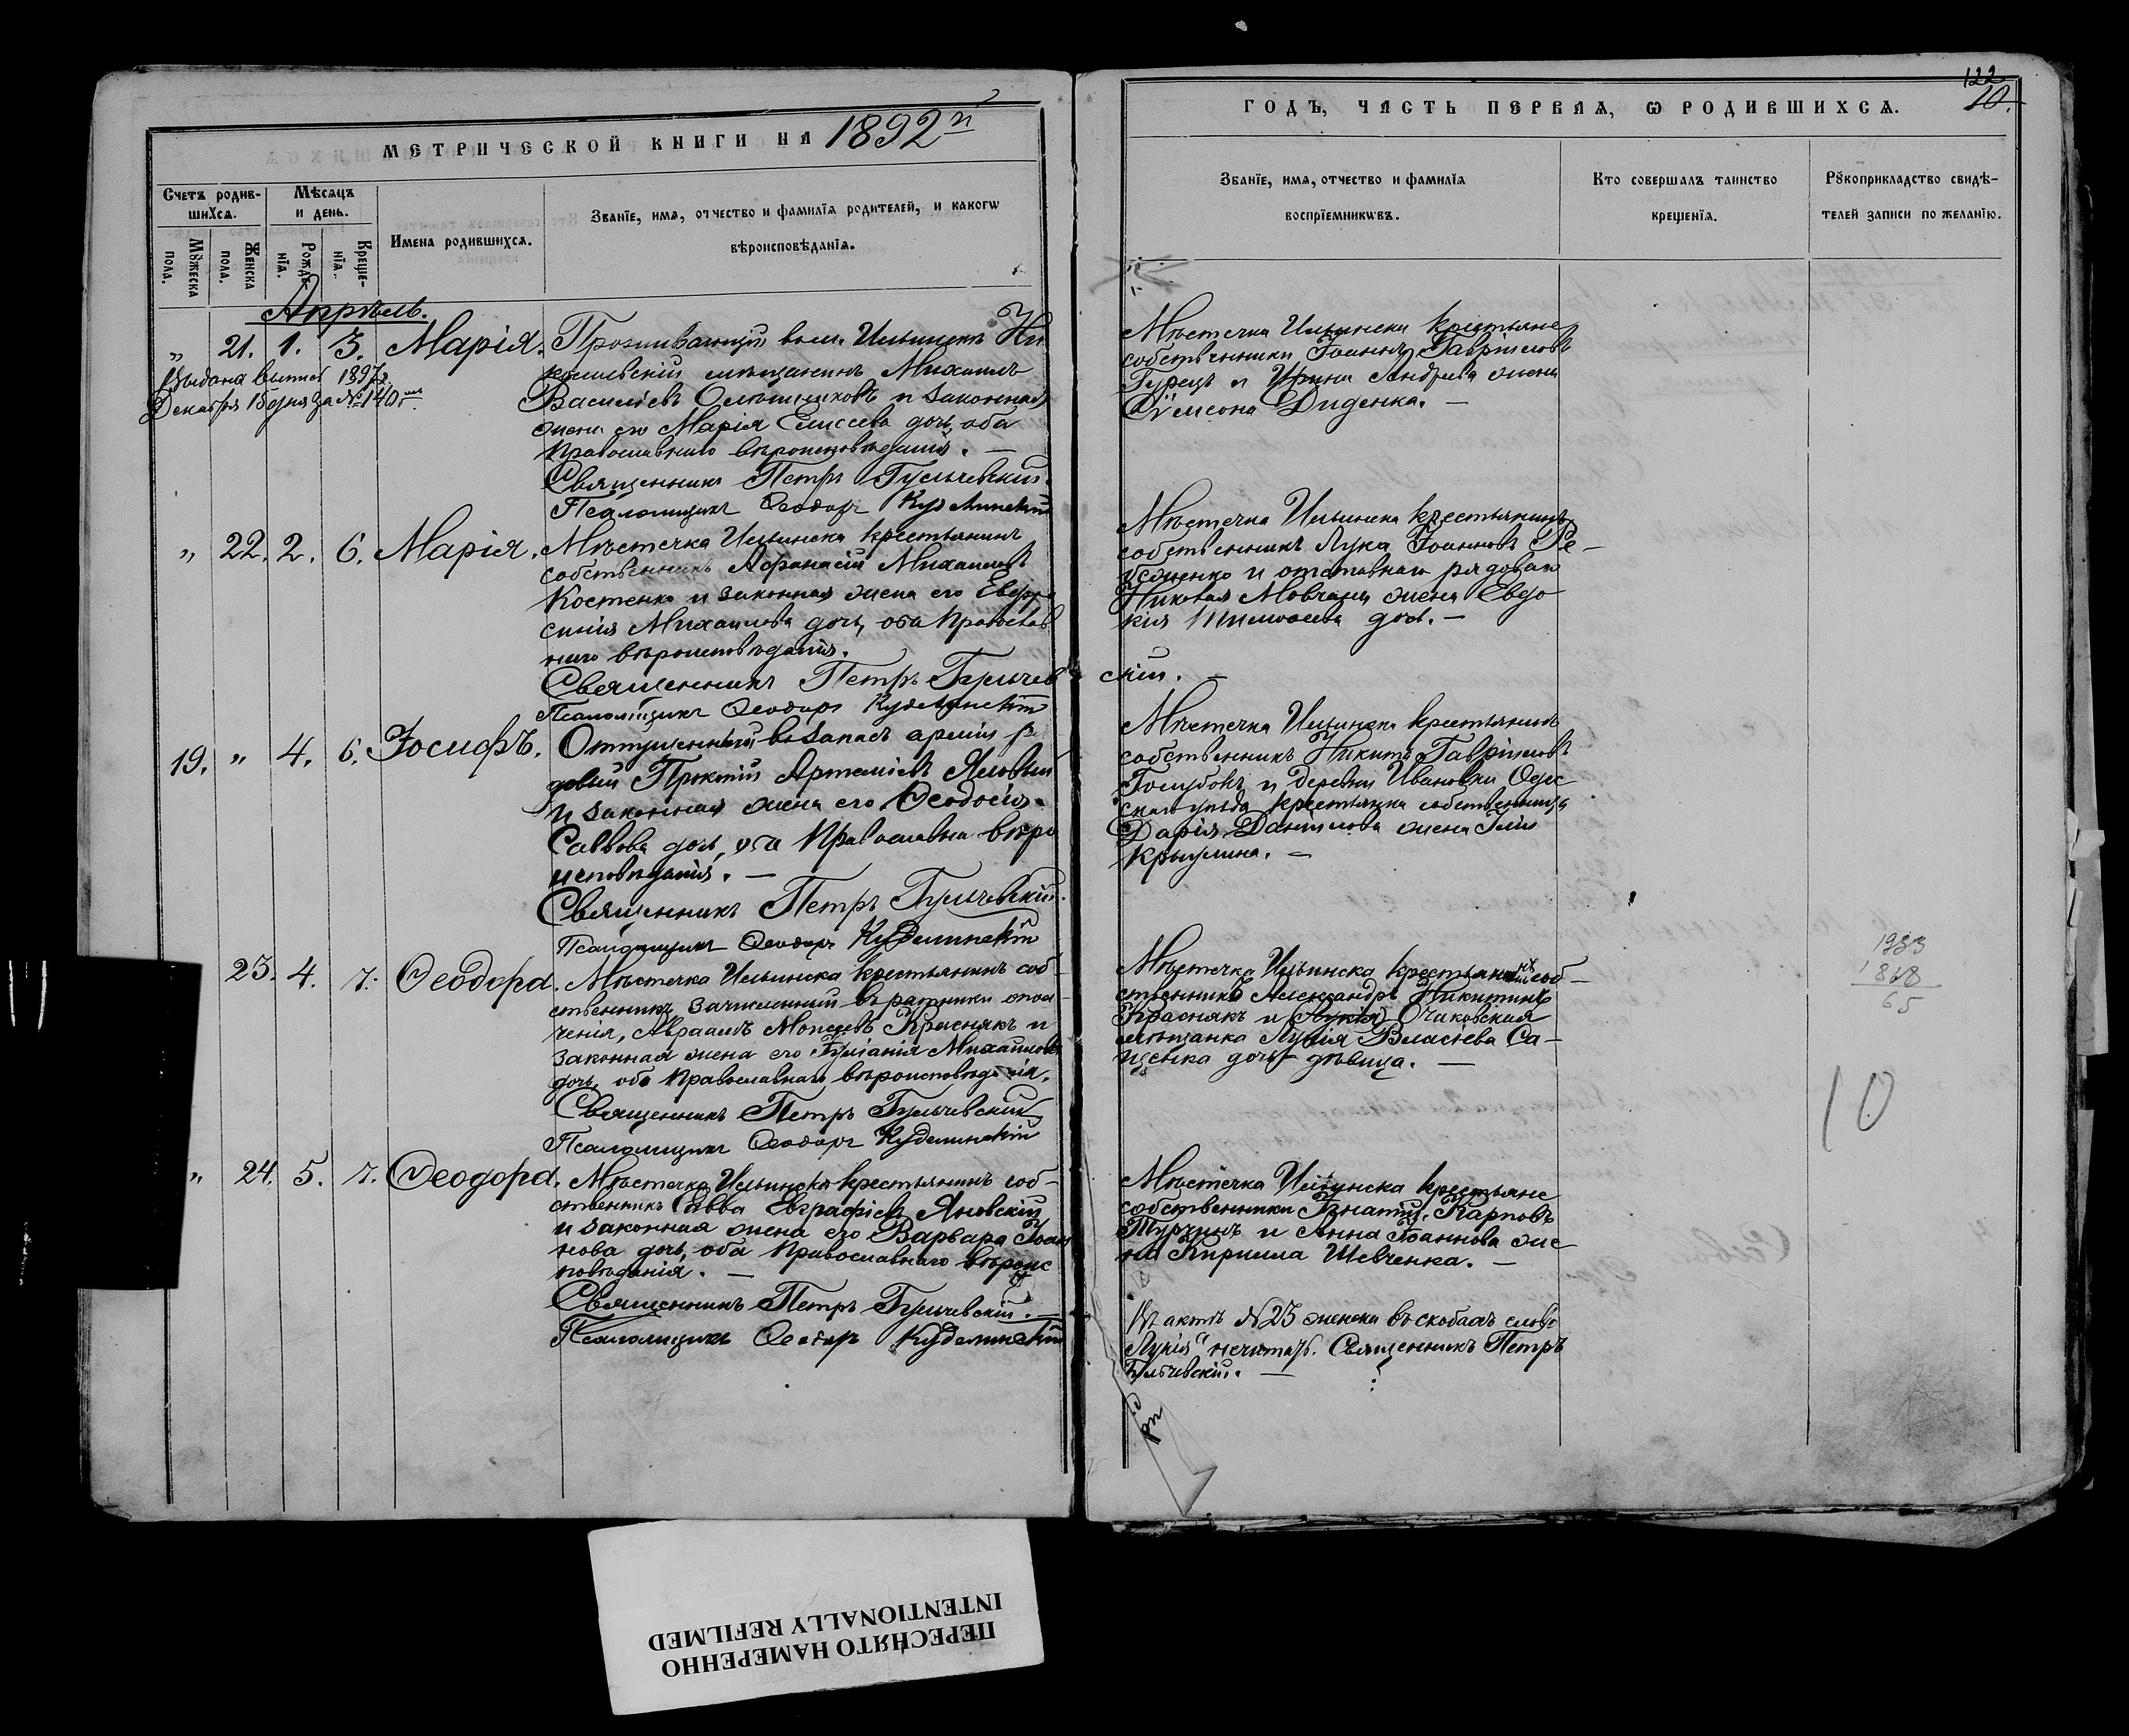 122
10.
МЕТРИЧЕСКОЙ КНИГИ НА 1892й
ГОДЪ, ЧАСТЬ ПЕРВАЯ, Ѡ РОДИВШИХСЯ.
Счетъ родив-
шихся.
Мѣсяцъ
и день.
Имена родившихся.
Званїе, имя, отчество и фамилїя родителей, и какогѡ
вѣроисповѣданїя.
Мꙋжеска
пола.
Женска
пола.
Рожде-
нїя.
Креще-
нїя.
Званїе, имя, отчество и фамилїя
воспрїемникѡвъ.
Кто совершалъ таинство
крещенїя.
Рꙋкоприкладство свидѣ-
телей записи по желанїю.
Апрѣль.
„ 21. 1. 3. Марія. Проживающій въ м. Ильинскѣ Ни
колаевскій мѣщанинъ Михаилъ
Васильевъ и законная
жена его Марія Елисеева дочь, оба
Православнаго вѣроисповѣданія. —
Священникъ Петръ Гульчевскій.
Псаломщикъ Ѳеодоръ Куделинскій
Выдана выпись 1897 г.
Декабря 15 дня за № 140
Мѣстечка Ильинска крестьяне
собственники Іоаннъ Гавріиловъ
Гурецъ и Ирина Андреева жена
Сѵмеона Диденка. —
„ 22. 2. 6. Марія. Мѣстечка Ильинска крестьянинъ
собственникъ Аѳанасій Михаиловъ
Костенко и законная жена его Евфро
синія Михаилова дочь, оба Православ
наго вѣроисповѣданія.
Священникъ Петръ Гульчев скій. —
Псаломщикъ Ѳеодоръ Куделинскій
Мѣстечка Ильинска крестьянинъ
собственникъ Лука Іоанновъ
и отставнаго рядоваго
Николая Мовчана жена Евдо
кія Тимоѳеева доч. —
19. „ 4. 6. Іосифъ. Отпущенный въ запасъ арміи ря
довый Прокопій Артеміевъ Яловый
и законная жена его Ѳеодосія
Саввова дочь, оба Православна вѣро
исповѣданія. —
Священникъ Петръ Гульчевскій.
Псаломщикъ Ѳеодоръ Куделинскій
Мѣстечка Ильинска крестьянинъ
собственникъ Никита Гавріиловъ
Голубокъ и деревни Ивановки Одес
скаго уѣзда крестьянка собственница
Дарія Даніилова жена Іліи
23. 4. 7. Ѳеодора. Мѣстечка Ильинска крестьянинъ соб-
ственникъ зачисленный въ ратники опол-
ченія, Авраамъ Моисеевъ Краснякъ и
законная жена его Іуліанія Михаилова
дочь, оба Православнаго вѣроисповѣданія.
Священникъ Петръ Гульчевскій
Псаломщикъ Ѳеодоръ Куделинскій
Мѣстечка Ильинска соб-
ственникъ Александръ Никитинъ
Краснякъ и (Лукія) Очаковская
мѣщанка Лукія Власіева Са-
щенка дочь дѣвица. —
1933
1868
65
10
„ 24. 5. 7. Ѳеодора. Мѣстечка Ильинска крестьянинъ соб-
ственникъ Савва Евграфіевъ Яновскій
и законная жена его Варвара Іоан
нова дочь, оба Православнаго вѣроис
повѣданія. —
Священникъ Петръ Гульчевскій. —
Псаломщикъ Ѳеодоръ Куделинскій
Мѣстечка Ильинска крестьяне
собственники Игнатій Карповъ
Турчинъ и Анна Іоаннова же
на Кирилла Шевченка. —
Въ актѣ № 23 женска въ скобахъ слово
„Лукія“ нечитать. Священникъ Петръ
Гульчевскій. —
ПЕРЕСНЯТО НАМЕРЕННО
INTENTIONALLY REFILMED